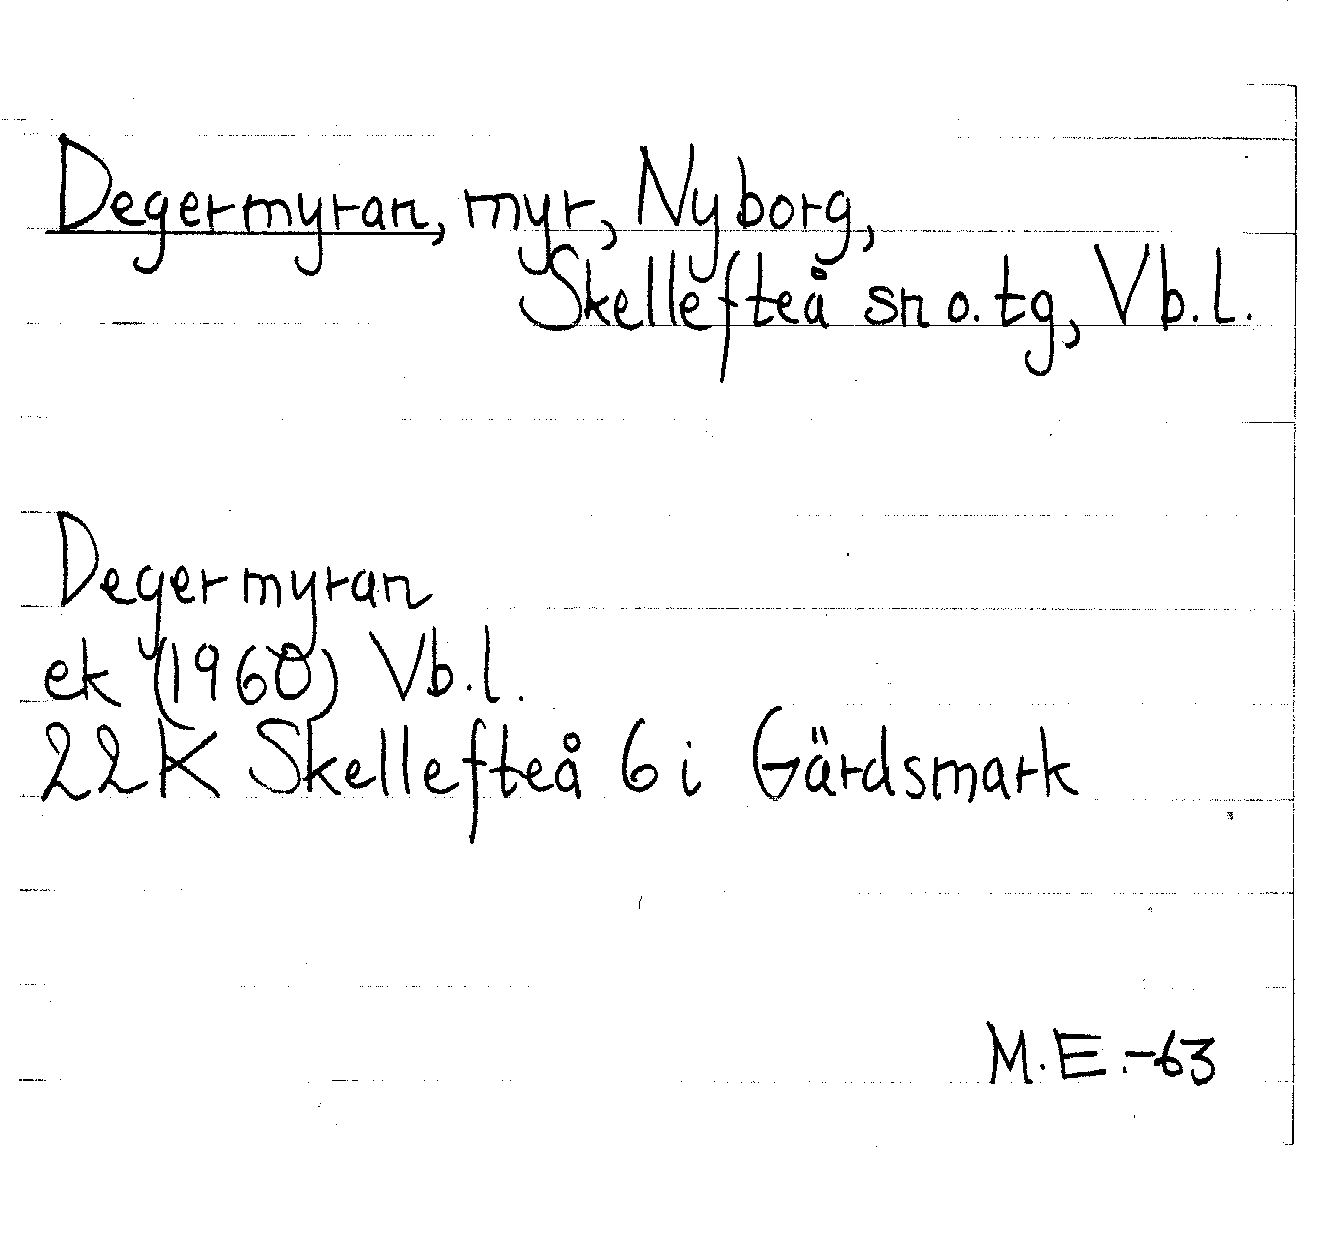 Degermyran, myr, Nyborg,
Skellefteå sn o. tg, Vb.l.
Degermyran
ek (1960) Vb.l.
22K Skellefteå 6 i Gärdsmark
M.E.-63